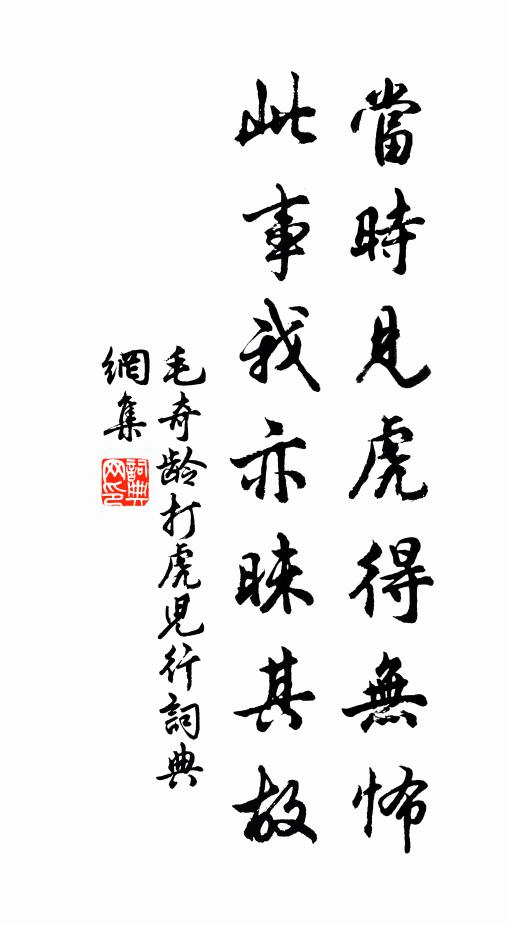 當時見虎得無怖
此事我亦昧其故
毛奇龄打虎児行詞典
網集
詞典
网印